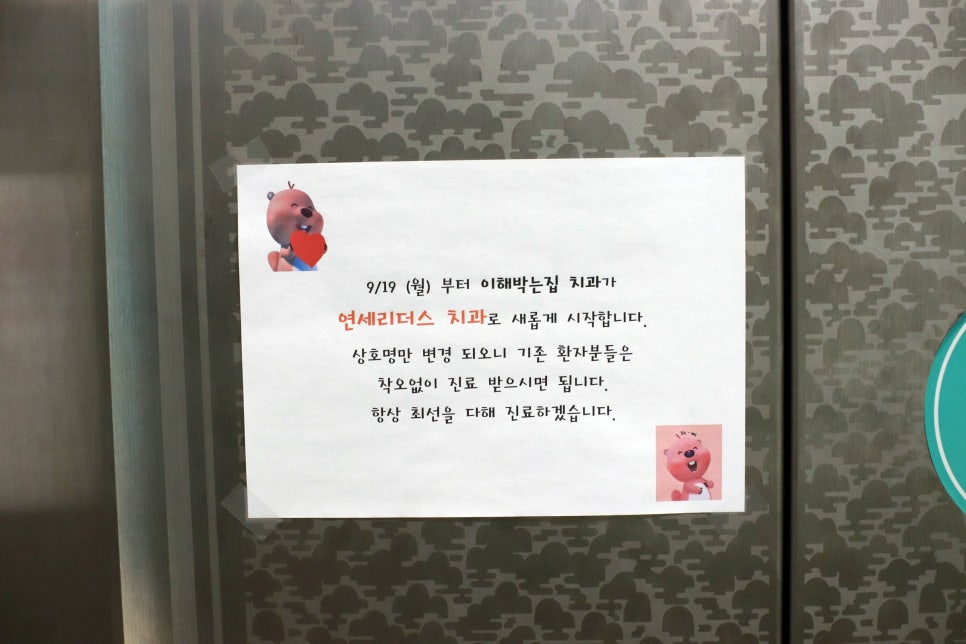 9/19 (월) 부터 이해박는집 치과가
연세리더스 치과로 새롭게 시작합니다.
상호명만 변경 되오니 기존 환자분들은
착오없이 진료 받으시면 됩니다.
항상 최선을 다해 진료하겠습니다.